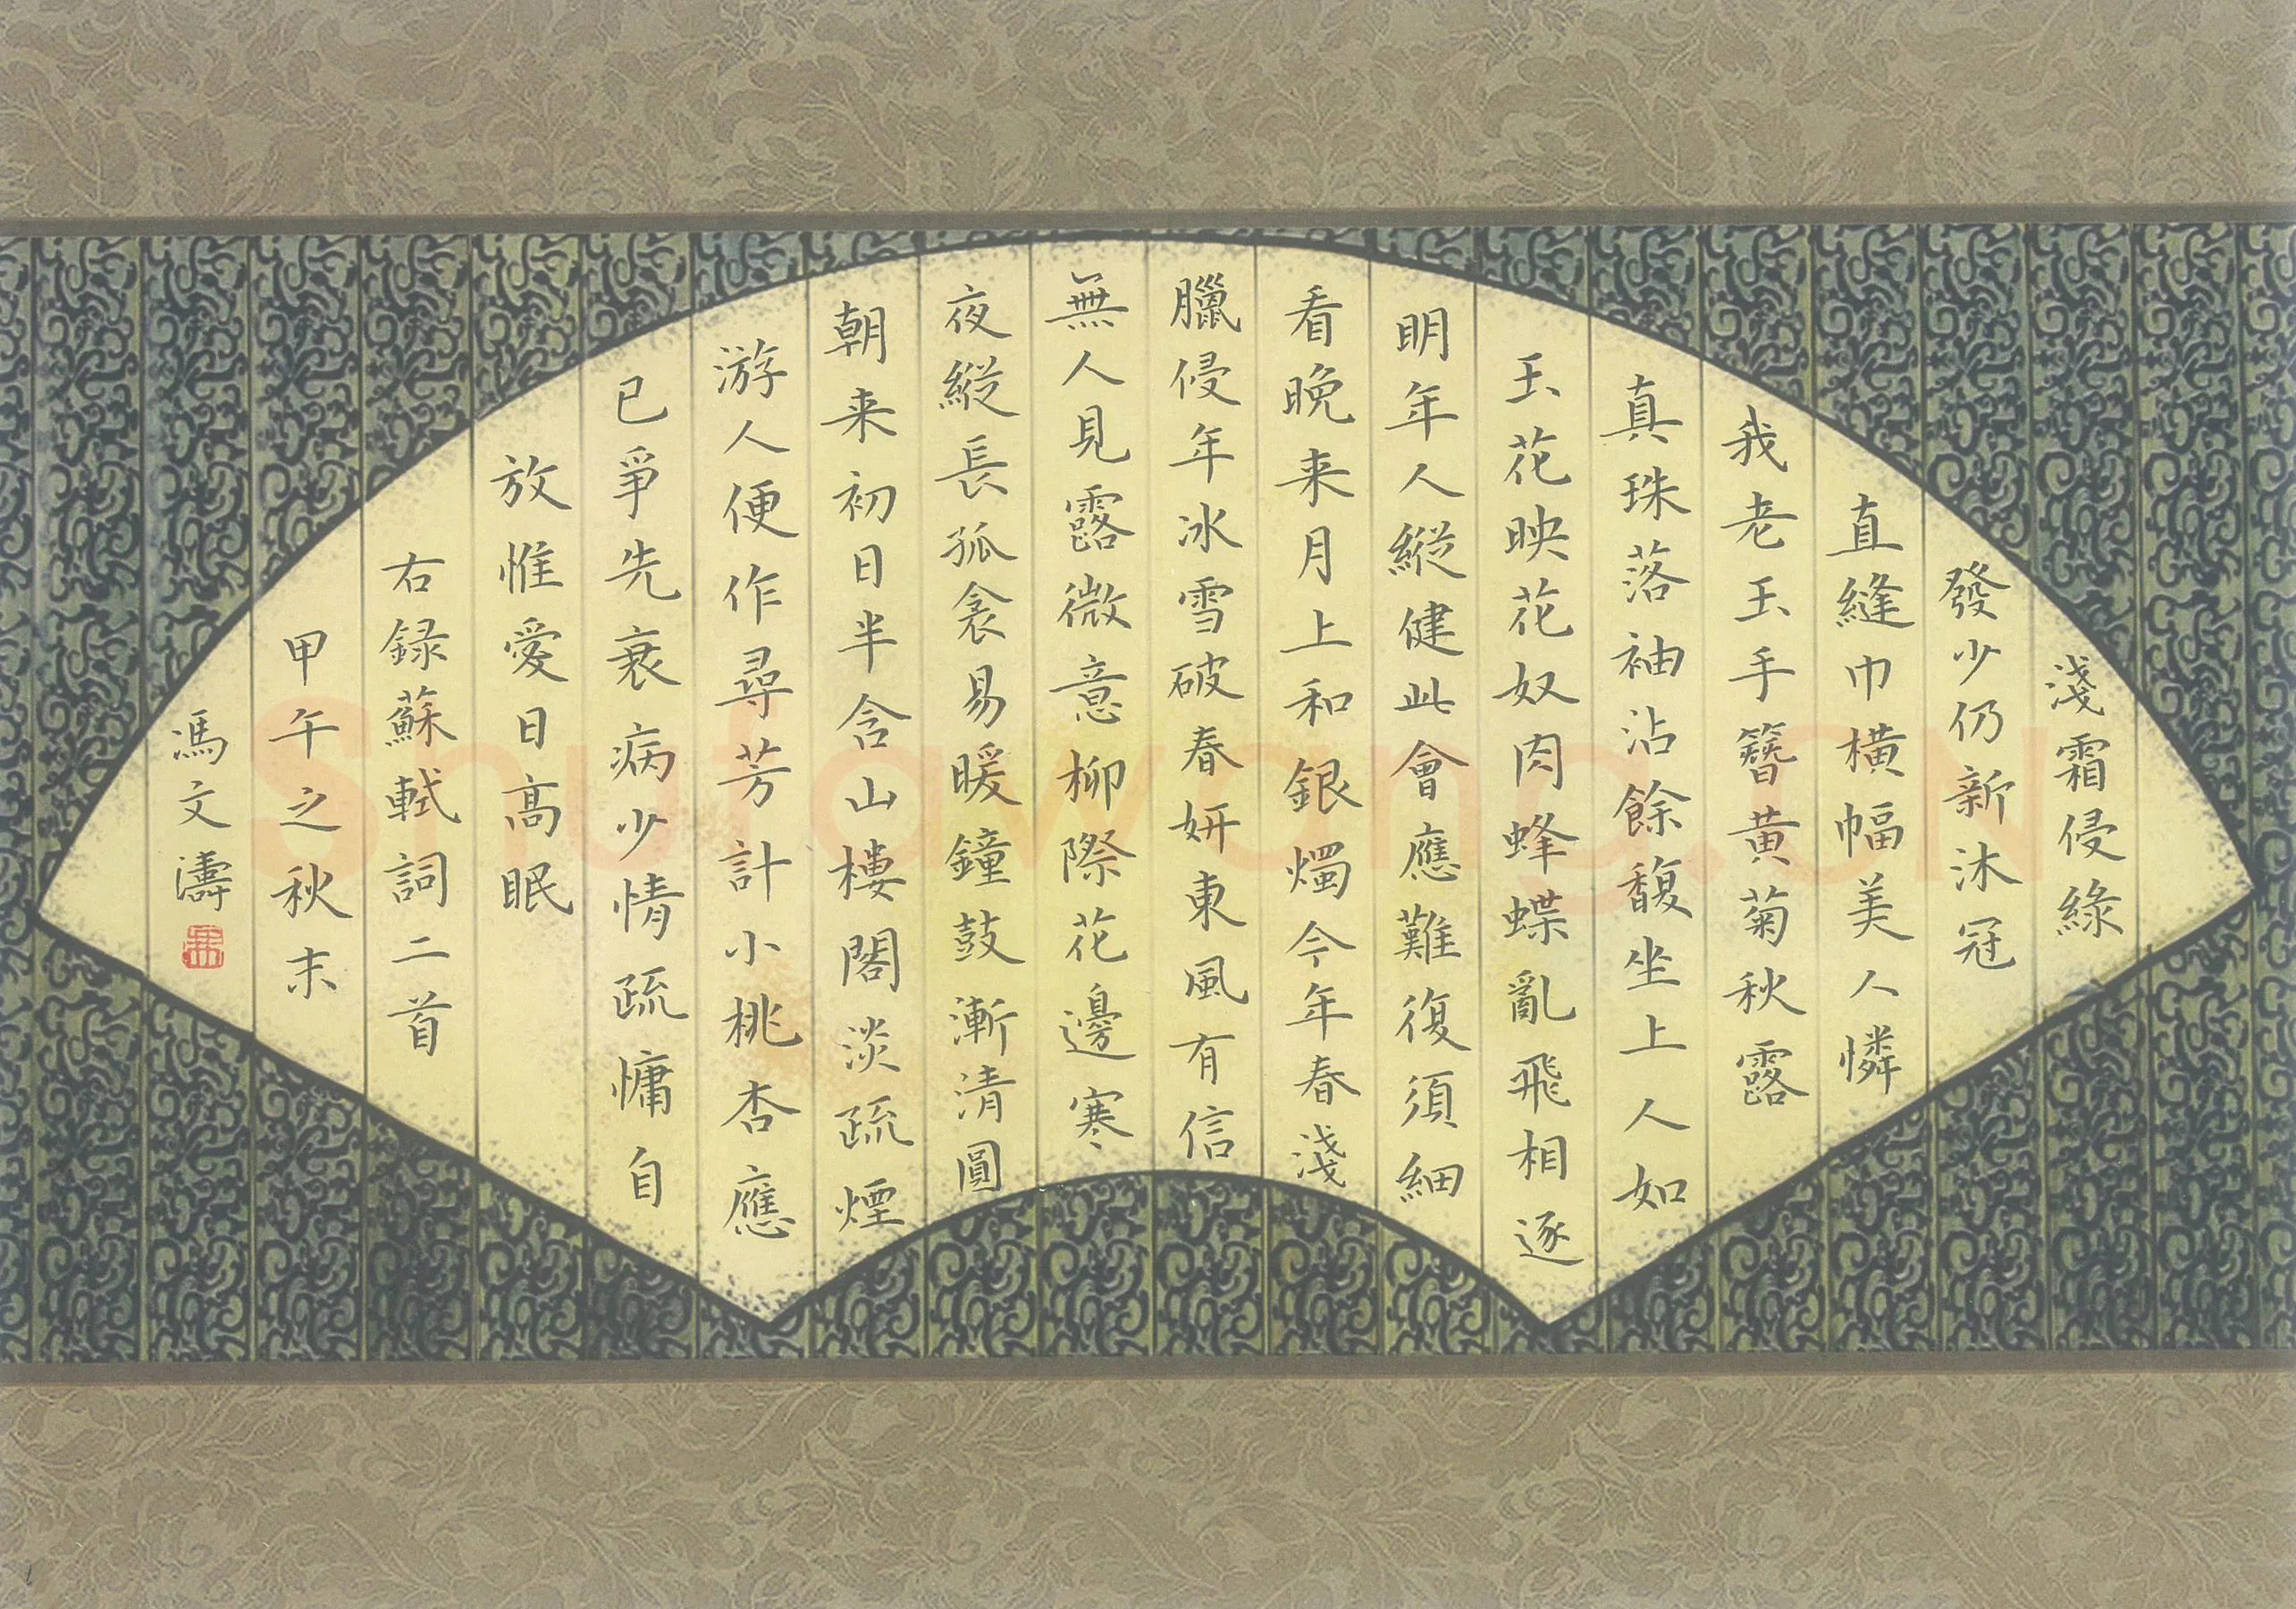 淺霜侵綠
發少仍新沐冠
直縫巾橫幅美人憐
我老玉手簪黃菊秋露
真珠落袖沾餘馥坐上人如
玉花映花奴肉蜂蝶亂飛相逐
明年人縱健此會應難復須細
看晚来月上和銀燭今年春淺
臘侵年冰雪破春妍東風有信
無人見露微意柳際花邊寒
夜縱長孤衾易暖鐘鼓漸清圓
朝来初日半含山樓閣淡疏煙
游人便作尋芳計小桃杏應
已爭先衰病少情疏慵自
放惟愛日高眠
右録蘇軾詞二首
甲午之秋末
馮文濤
Shufawang.CN